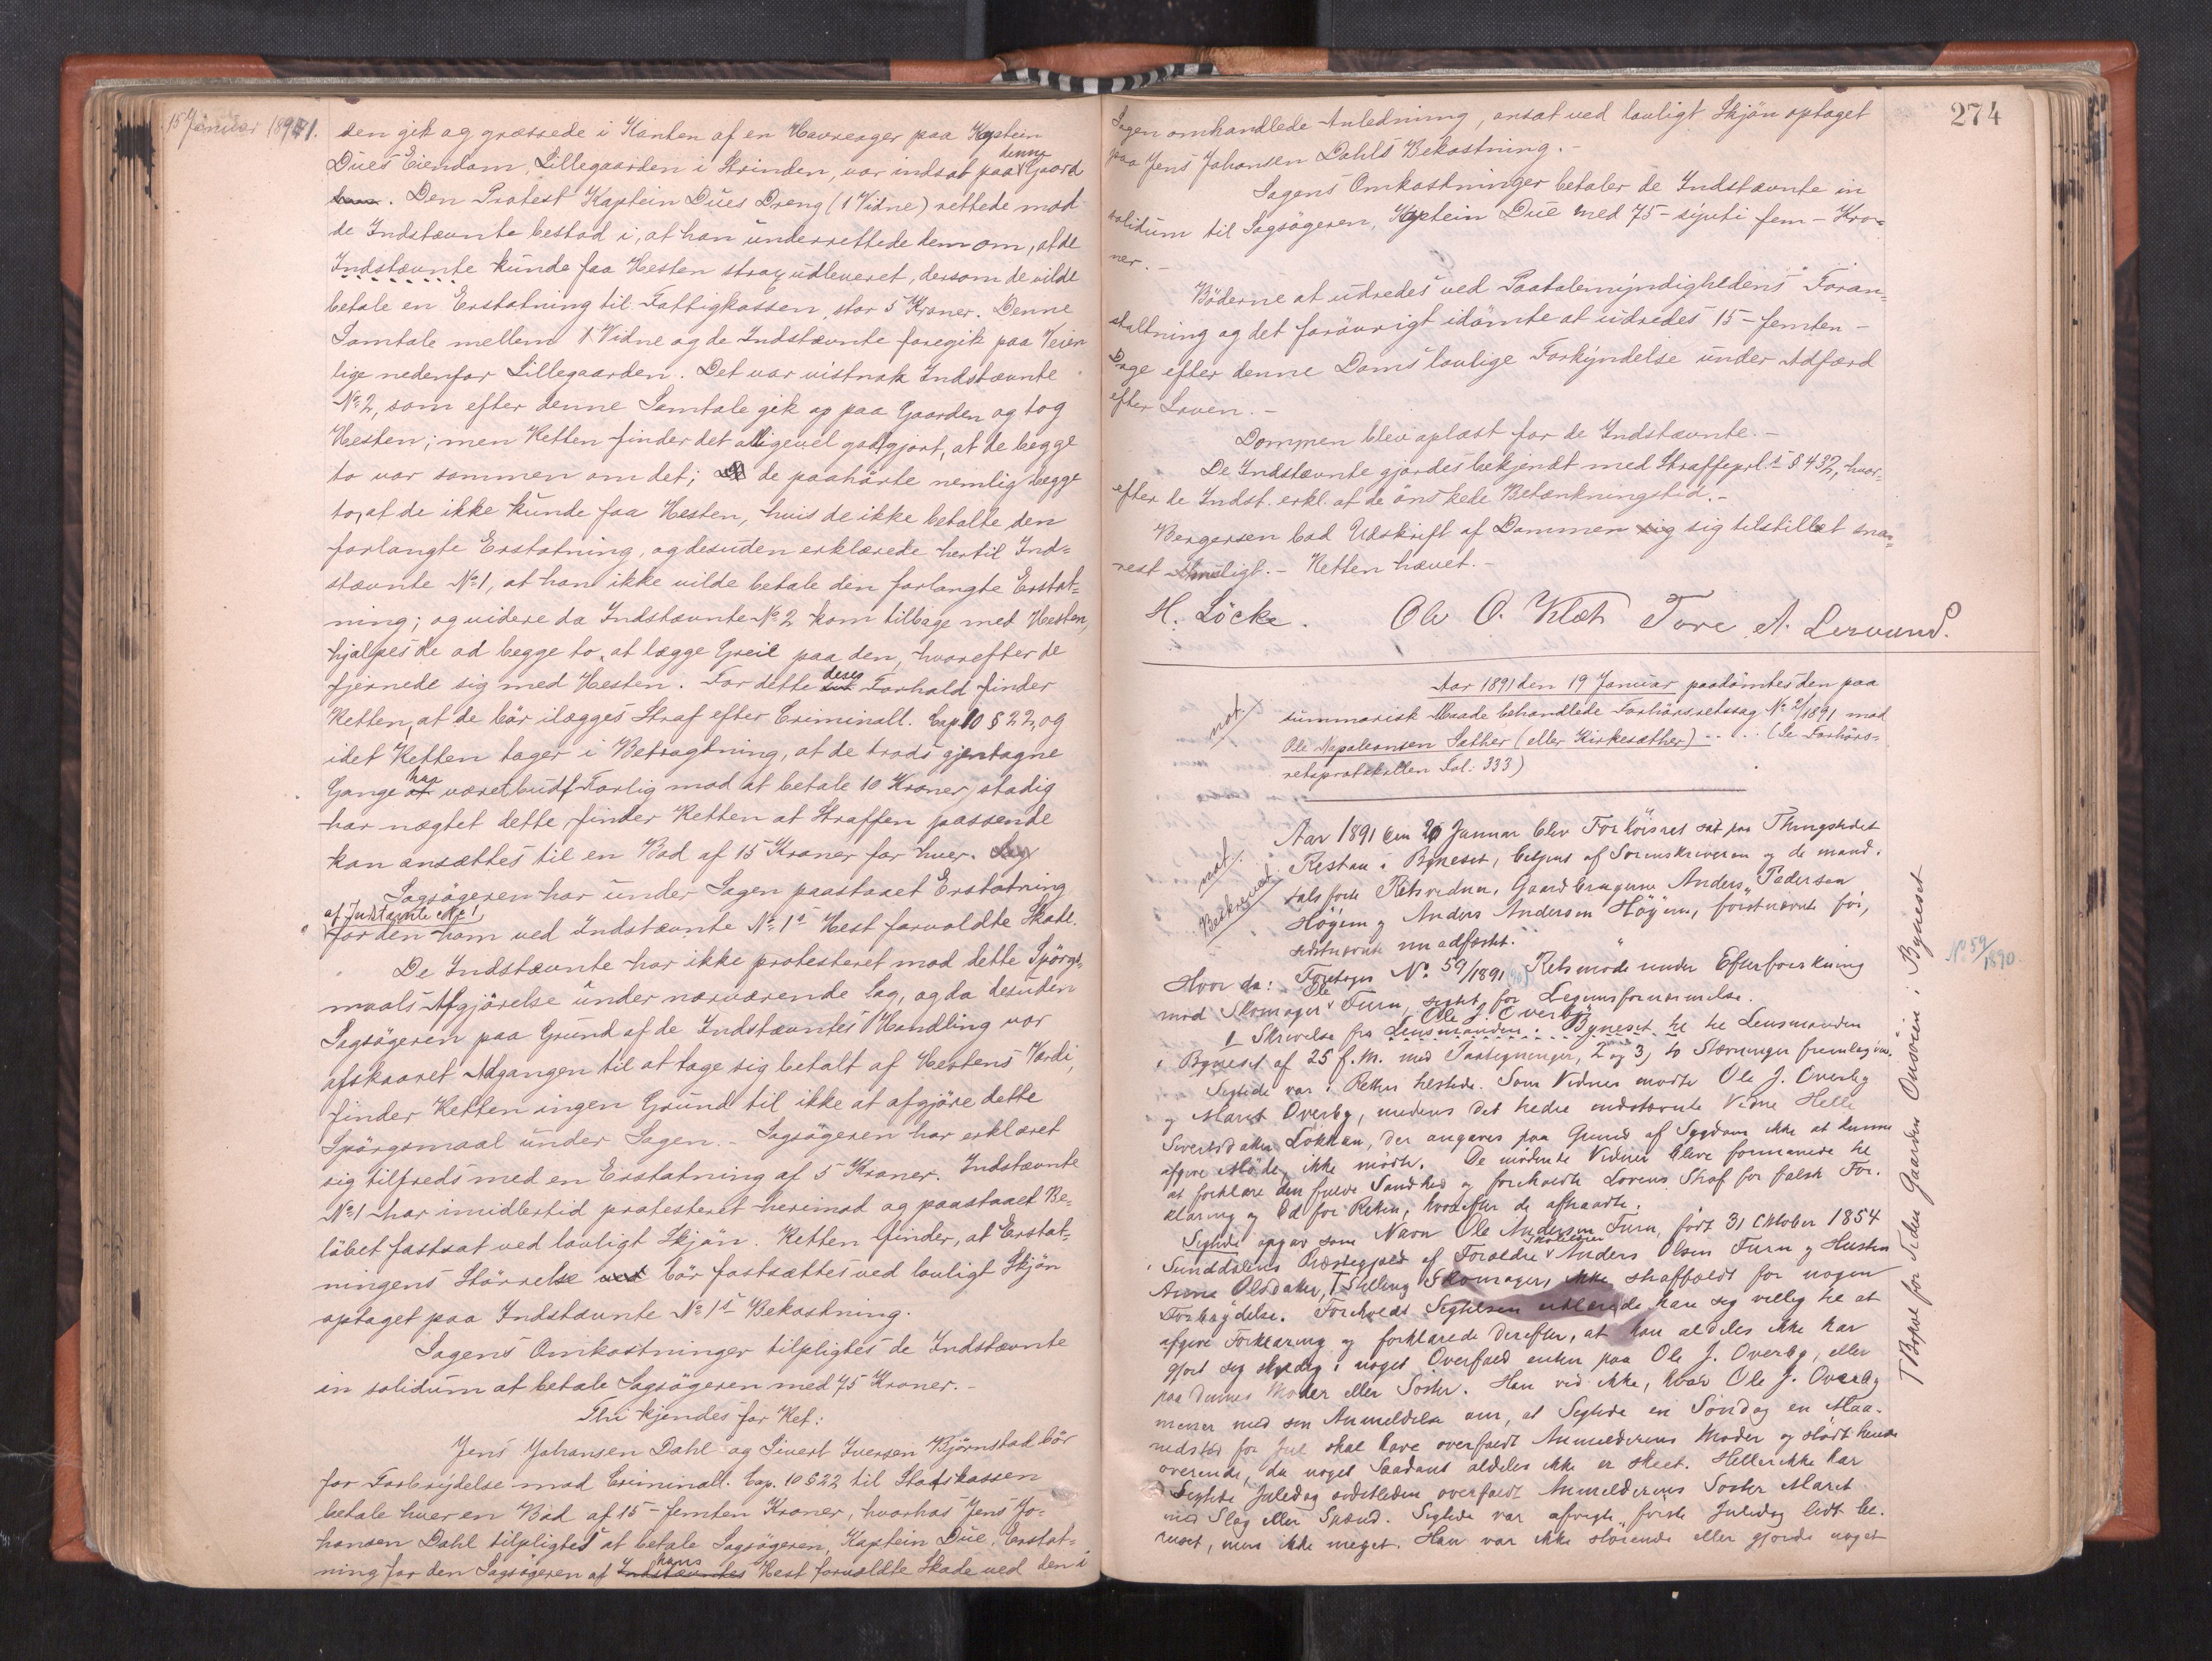 15 Januar 1891.
den gik og græssede i Kanten af en Havreager paa Kaptein
Dues Eiendom, Lillegaarden i Strinden, var indsat paa denne Gaard
. Den Protest Kaptein Dues Dreng (1 Vidne) rettede mod
de Indstævnte bestod i, at han underrettede dem om, at de
Indstævnte kunde faa Hesten strax udleveret, dersom de vilde
betale en Erstatning til Fattigkassen, stor 5 Kroner. Denne
Samtale mellem 1 Vidne og de Indstævnte foregik paa Veien
lige nedenfor Lillegaarden. Det var vistnok Indstævnte
No 2, som efter denne Samtale gik op paa Gaarden og tog
Hesten; men Retten finder det alligevel godtgjort, at de begge
to var sammen om det; de paahørte nemlig begge
to, at de ikke kunde faa Hesten, hvis de ikke betalte den
forlangte Erstatning, og desuden erklærede hertil Ind-
stævnte No 1, at han ikke vilde betale den forlangte Erstat-
ning; og videre da Indstævnte No 2 kom tilbage med Hesten,
hjalpes de ad begge to at lægge Greie paa den, hvorefter de
fjernede sig med Hesten. For dette deres Forhold finder
Retten, at de bör ilægges Straf efter Criminall. Cap 10 § 22, og
idet Retten tager i Betragtning, at de trods gjentagne
Gange har været budt Forlig mod at betale 10 Kroner, stadig
har nægtet dette, finder Retten at Straffen passende
kan ansættes til en Bod af 15 Kroner for hver.
Sagsögeren har under Sagen paastaaet Erstatning
af Indstævnte No 1
for den ham ved Indstævnte No 1s Hest forvoldte Skade.
De Indstævnte har ikke protesteret mod dette Spörgs-
maals Afgjörelse under nærværende Sag, og da desuden
Sagsögeren paa Grund af de Indstævntes Handling var
afskaaret Adgangen til at tage sig betalt af Hestens Værdi,
finder Retten ingen Grund til ikke at afgjöre dette
Spörgsmaal under Sagen. - Sagsögeren har erklæret
sig tilfreds med en Erstatning af 5 Kroner. Indstævnte
No 1 har imidlertid protesteret herimod og paastaaet Be-
löbet fastsat ved lovligt Skjön. Retten finder, at Erstat-
ningens Störrelse bör fastsættes ved lovligt Skjön
optaget paa Indstævnte No 1s Bekostning.
Sagens Omkostninger tilpligtes de Indstævnte
in solidum at betale Sagsögeren med 75 Kroner. -
Thi kjendes for Ret:
Jens Johansen Dahl og Sivert Iversen Björnstad bör
for Forbrydelse mod Criminall. Cap. 10 § 22 til Statskassen
betale hver en Bod af 15 - femten Kroner, hvorhos Jens Jo-
hansen Dahl tilpligtes at betale Sagsögeren, Kaptein Due, Erstat-
ning for den Sagsögeren af Indstævntes hans Hest forvoldte Skade ved den i
274
Sagen omhandlede Anledning, ansat ved lovligt Skjön optaget
paa Jens Johansen Dahls Bekostning. -
Sagens Omkostninger betaler de Indstævnte in
solidum til Sagsögeren, Kaptein Due med 75 - sytti fem - Kro-
ner. -
Böderne at udredes ved Paatalemyndighedens Foran-
staltning og det forövrigt idömte at udredes 15 - femten -
Dage efter denne Doms lovlige Forkyndelse under Adfærd
efter Loven. -
Dommen blev oplæst for de Indstævnte. -
De Indstævnte gjordes bekjendt med Straffeprl.s § 432, hvor-
efter de Indst. erkl. at de önskede Betænkningstid. -
Bergersen bad Udskrift af Dommen sig sig tilstillet sna-
rest muligt. - Retten hævet. -
H. Löcke. Ole O. Klæth Tore A. Lervund.
not.
Aar 1891 den 19 Januar paadömtes den paa
summarisk Maade behandlede Forhörsretssag No 2/1891 mod
Ole Napoleonsen Sæther (eller Kirkesæther) . . . (Se Forhörs-
retsprotokollen Fol: 333)
not.
Beskrevet.
Aar 1891 den 20 Januar blev Forhörsret sat paa Thingstedet
Restan i Byneset, betjent af Sorenskriveren og de mand-
talsförte Retsvidner, Gaardbrugerne Anders Pedersen
Höyem og Anders Andersen Höyem, förstnævnte för,
sidstnævnte nu edfæstet.
Hvor da: Foretoges No 59/1891 Retsmöde under Efterforskning
mod Skomager Ole Furu, sigtet for Legemsfornærmelse.
No 59/1890.
Ole J. Overby
1 Skrivelse fra Lensmanden i Byneset til Lensmanden
i Byneset af 25 f. M. med Paategninger, 2 og 3, to Stævninger fremlagdes.
Sigtede var i Retten tilstede. Som Vidner mödte Ole J. Overby
og Marit Overby, medens det tredie indstævnte Vidne Helle
Sivertsdatter Lökhau, der angaves paa Grund af Sygdom ikke at kunne
afgive Möde, ikke mödte. De mödende Vidner bleve formanede til
at forklare den fulde Sandhed og foreholdte Lovens Straf for falsk For-
klaring og Ed for Retten, hvorefter de aftraadte.
Sigtede opgav som Navn Ole Andersen Furu, födt 31 Oktober 1854
i Sunddalens Præstegjeld af Forældre Anders Olsen Furu og Hustru
Anne Olsdatter, T Stilling Skomager, ikke straffældt for nogen
Forbrydelse. Foreholdt Sigtelsen erklærede han sig villig til at
afgive Forklaring og forklarede derefter, at han aldeles ikke har
gjort sig skyldig i noget Overfald enten paa Ole J. Overby, eller
paa dennes Moder eller Söster. Han ved ikke, hvad Ole J. Overby
mener med sin Anmeldelse om, at Sigtede en Söndag en Maa-
neds tid för Jul skal have overfaldt Anmelderens Moder og stödt hende
overende, da noget Saadant aldeles ikke er skeet. Heller ikke har
Sigtede Juledag sidstleden overfaldt Anmelderens Söster Marit
med Slag eller Spænd. Sigtede var afvigte förste Juledag lidt be-
ruset, men ikke meget. Han var ikke störende eller gjorde noget
T Bopæl for Tiden Gaarden Onsöien i Byneset